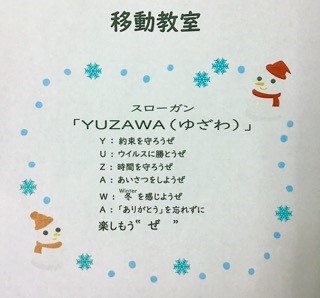 移動教室
スローガン
「YUZAWA(ゆざわ)」
Y：約束を守ろうぜ
U：ウイルスに勝とうぜ
Z：時間を守ろうぜ
A：あいさつをしようぜ
Winter
W：冬を感じようぜ
A：「ありがとう」を忘れずに
楽しもう“ぜ”